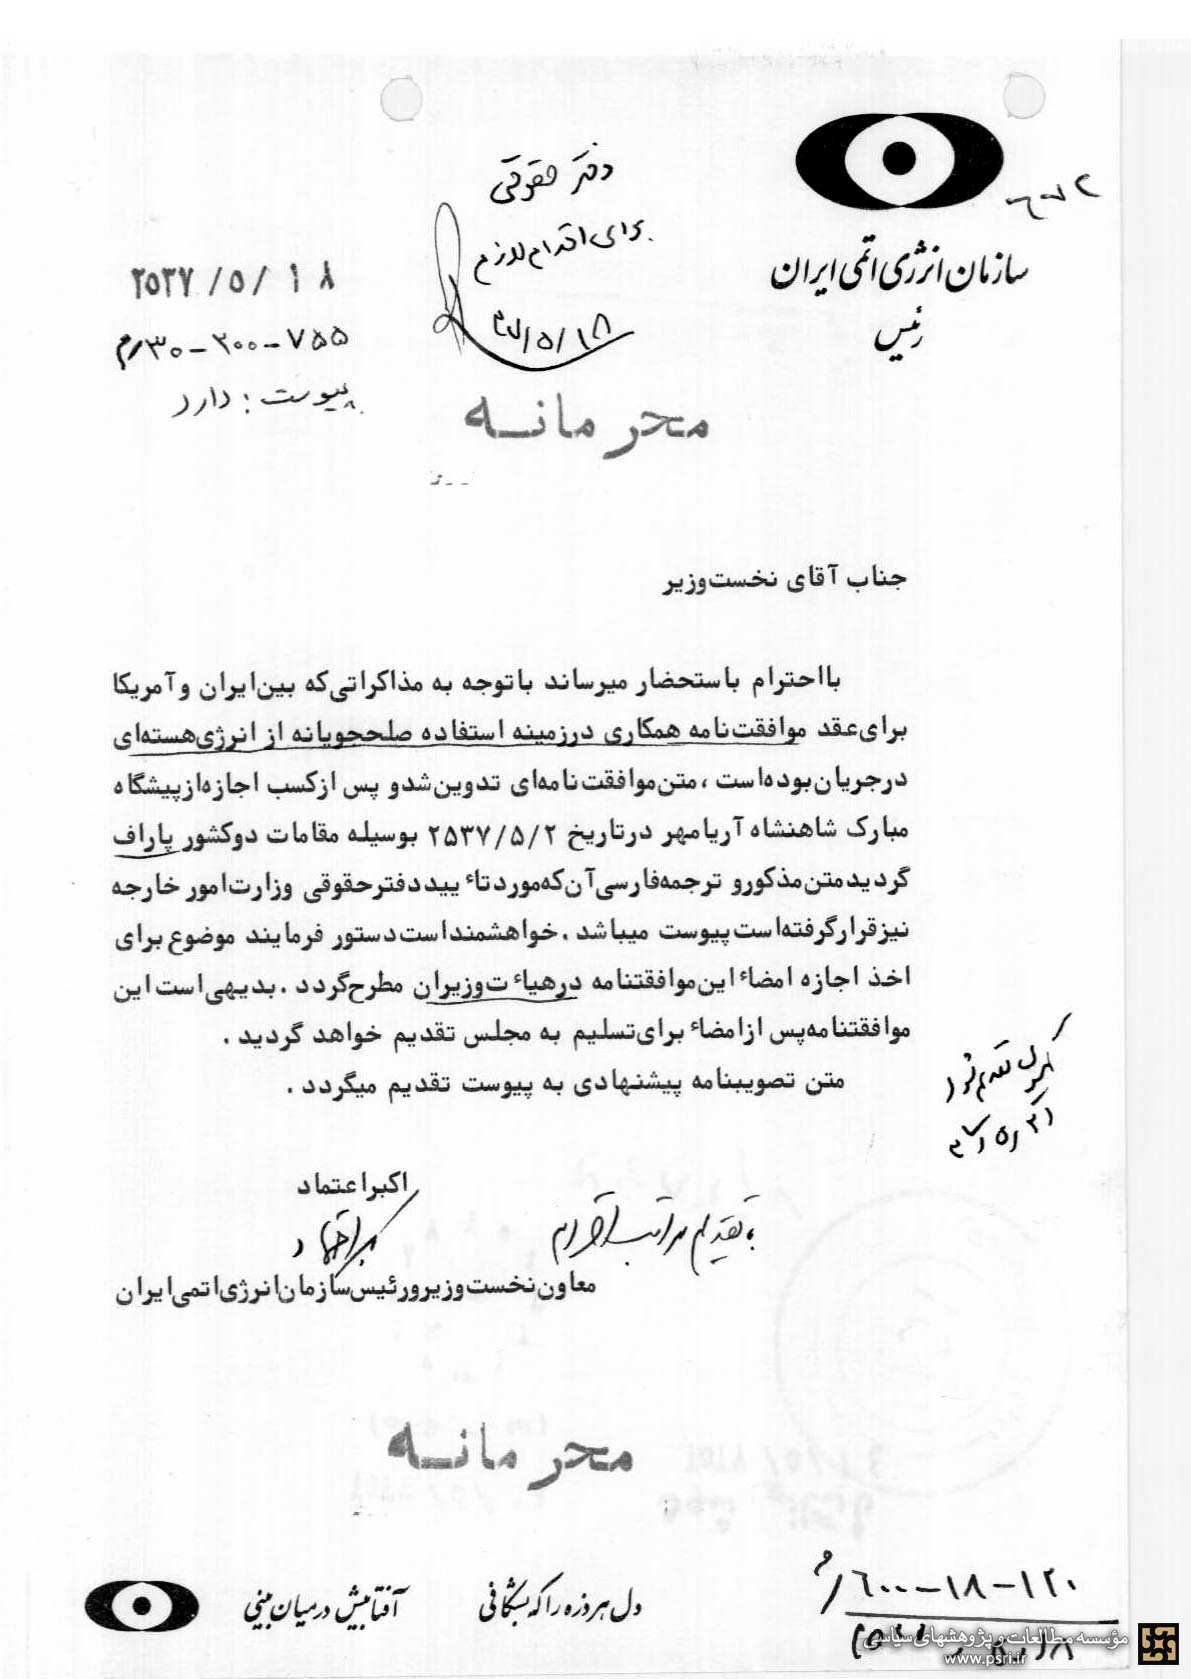 سازمان انرژی اتمی ایران
رئیس
دفتر حقوقی
برای اقدام لازم
۳۷/۵/۱۸
۲۵۳۷/۵/۱۸
۷۵۵-۲۰۰-۳۰/م
پیوست : دارد
محرمانه
جناب آقای نخست‌وزیر
بااحترام باستحضار میرساند باتوجه به مذاکراتی‌که بین‌ایران وآمریکا
برای‌عقد موافقت‌نامه همکاری درزمینه استفاده صلحجویانه از انرژی‌هسته‌ای
درجریان‌بوده‌است ، متن‌موافقت‌نامه‌ای تدوین‌شدو پس ازکسب اجازه‌ازپیشگاه
مبارک شاهنشاه آریامهر درتاریخ ۲۵۳۷/۵/۲ بوسیله مقامات دوکشور پاراف
گردیدمتن‌مذکورو ترجمه‌فارسی‌آن‌که‌موردتاٴییددفترحقوقی وزارت‌امور خارجه
نیزقرارگرفته‌است‌پیوست میباشد . خواهشمنداست‌دستور فرمایند موضوع‌برای
اخذ اجازه امضاٴ این‌موافقتنامه درهیاٴت‌وزیران مطرح‌گردد . بدیهی‌است این
موافقتنامه‌پس ازامضاٴ برای‌تسلیم به مجلس تقدیم خواهد گردید .
متن تصویبنامه پیشنهادی به پیوست تقدیم میگردد .
با تقدیم مراتب احترام
اکبراعتماد
معاون‌نخست‌وزیرورئیس‌سازمان‌انرژی‌اتمی‌ایران
محرمانه
دل هر ذره را که بشکافی
آفتابیش در میان بینی
۱۲۰-۱۸-۶۰۰۰/م
مؤسسه مطالعات و پژوهشهای سیاسی
www.psri.ir